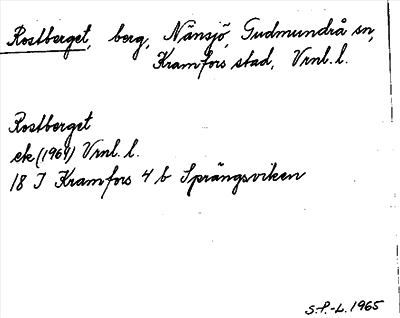 Rostberget, berg, Nänsjö, Gudmundrå sn,
Kramfors stad, Vrnl. l.
Rostberget
ek (1964) Vrnl. l.
18 I Kramfors 4 b Sprängsviken
S.-P.-L. 1965